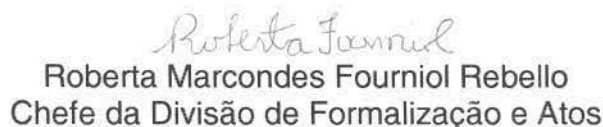 Roberta Fourniol
Roberta Marcondes Fourniol Rebello
Chefe da Divisão de Formalização e Atos